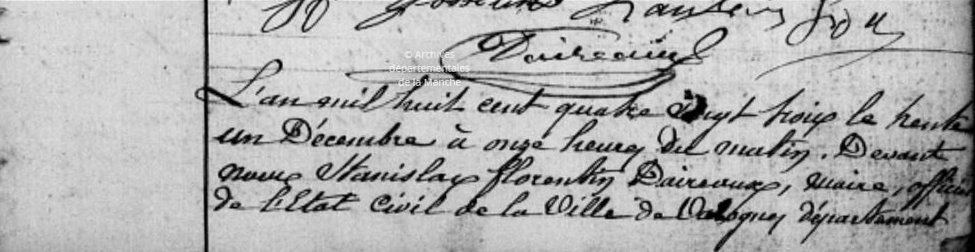 Daireaux
© Archives
départementales
de la Manche
L'an mil huit cent quatre vingt trois le trente
un Décembre à onze heures du matin. Devant
nous Stanislas florentin Daireaux, maire, officier
de l'Etat civil de la Ville de Valognes département